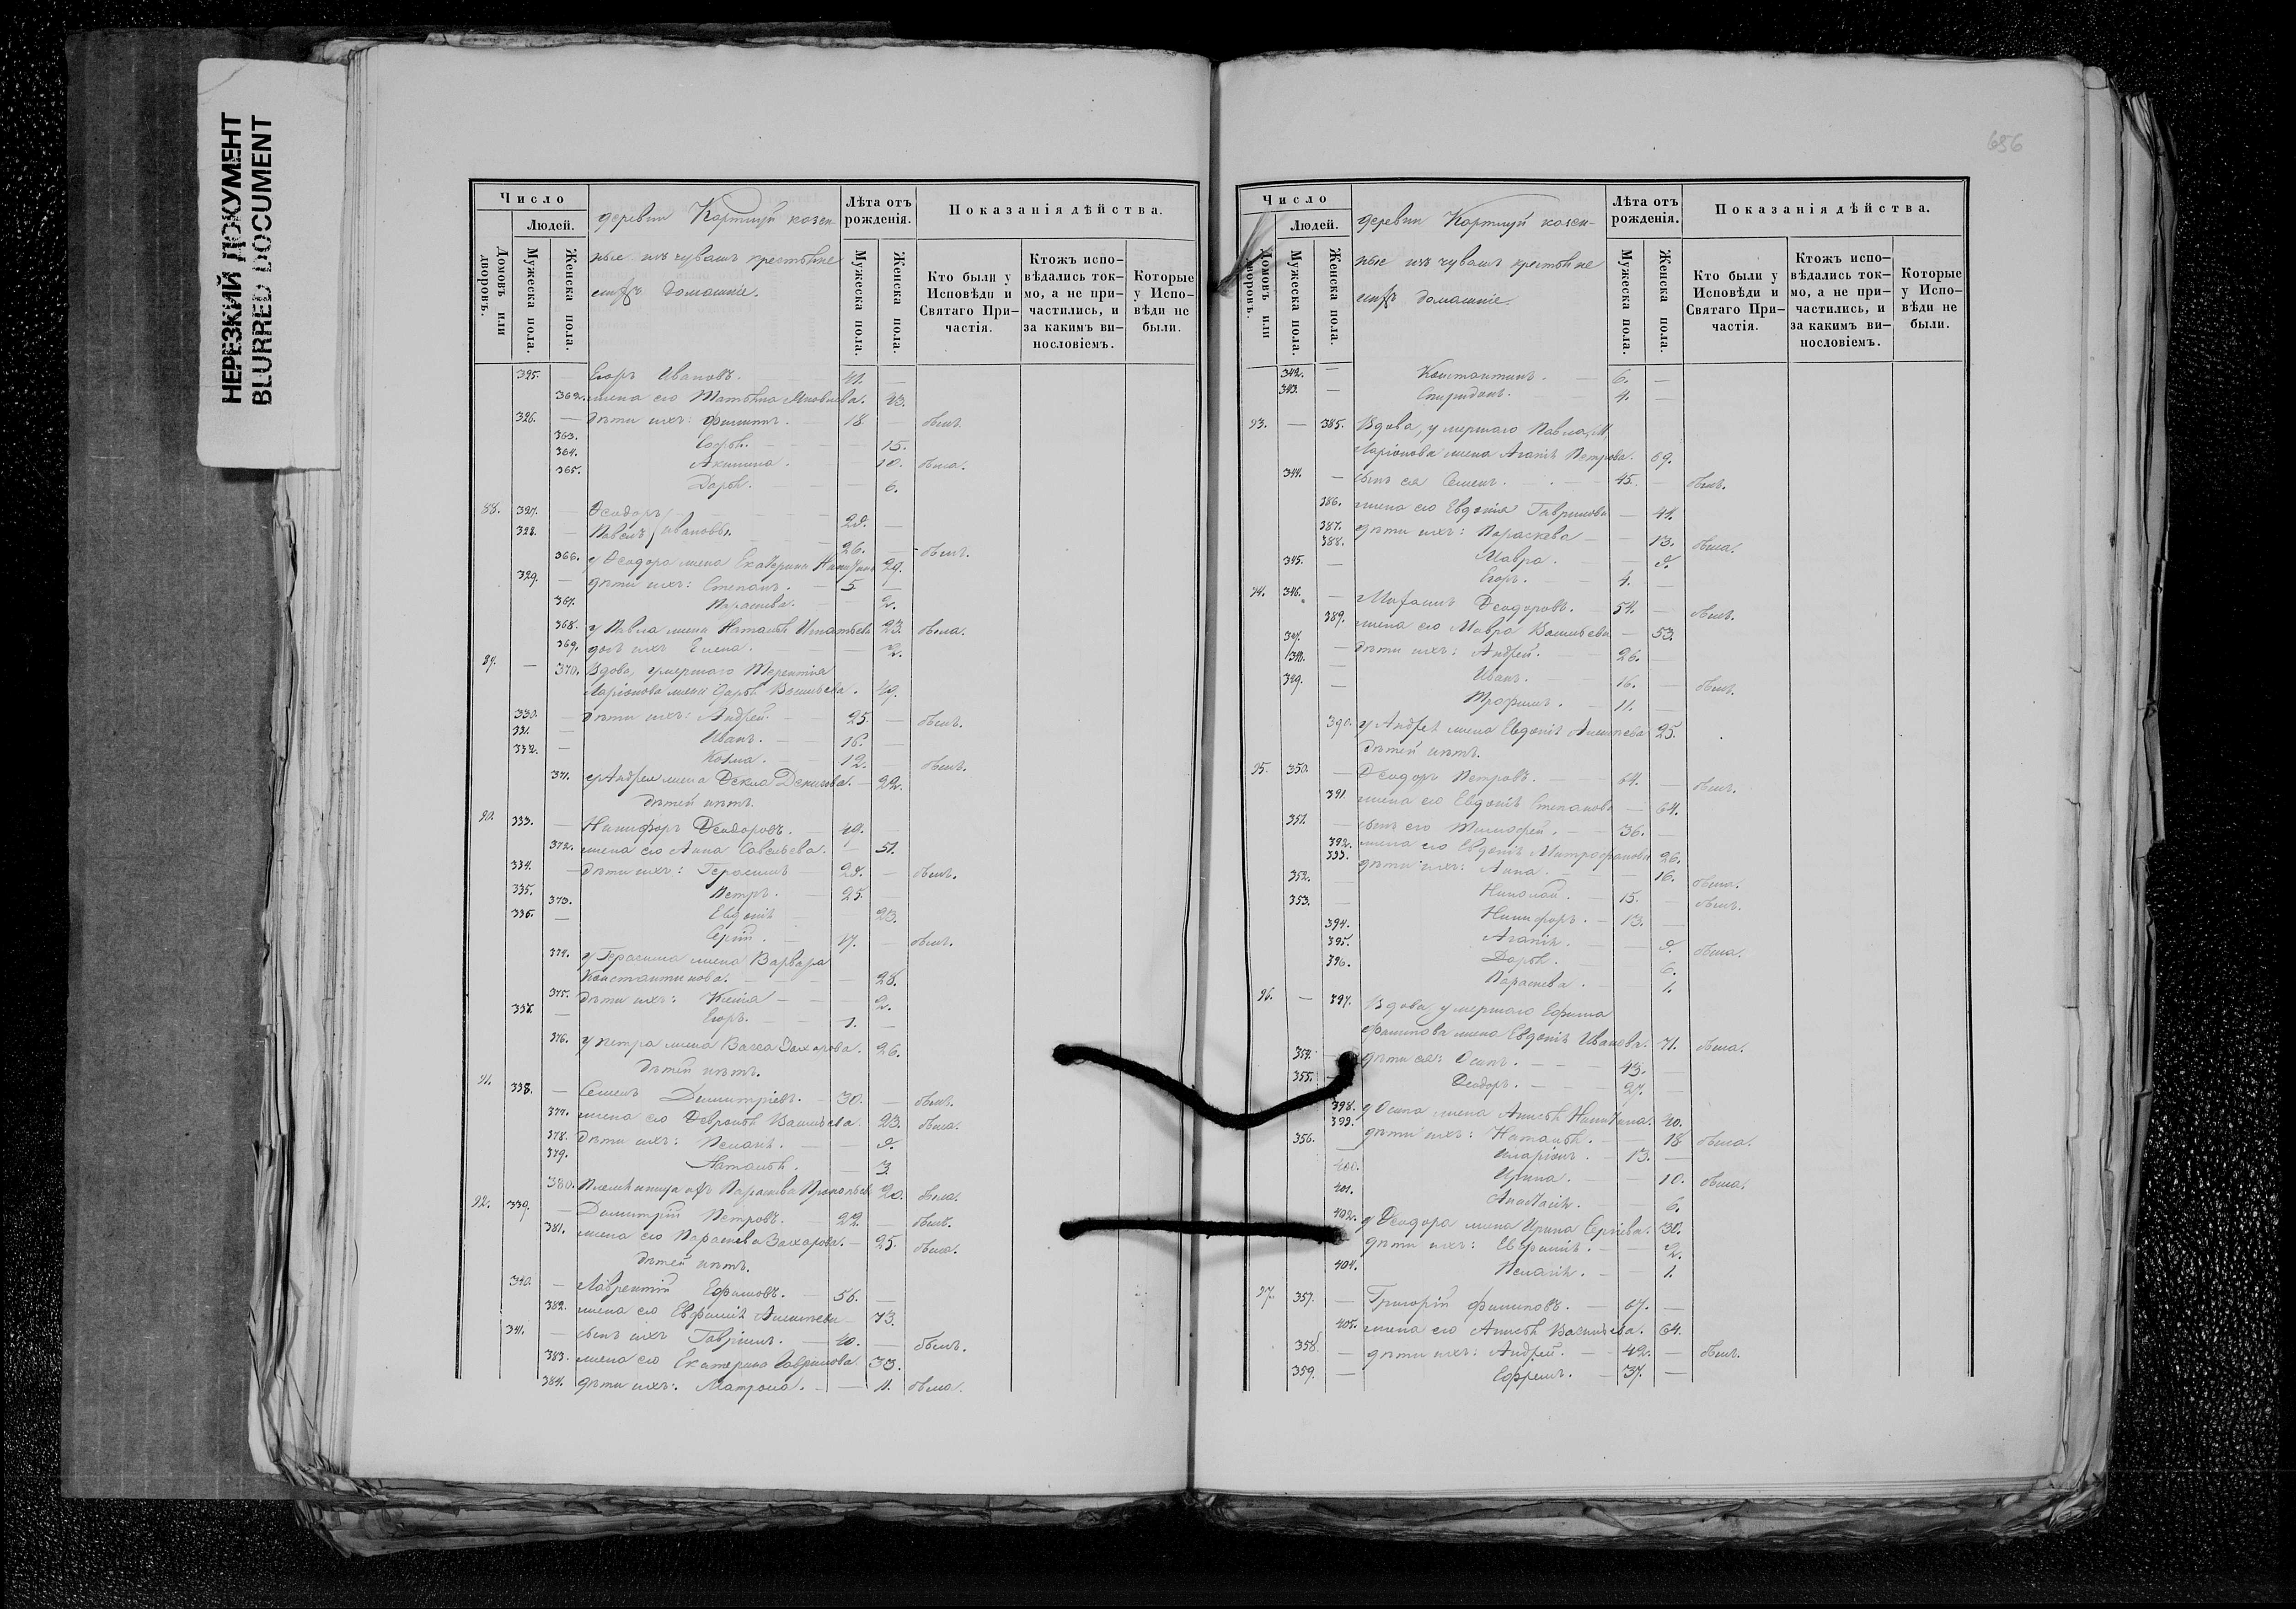 НЕРЕЗКИЙ ДОКУМЕНТ
BLURRED DOCUMENT
Число
Людей.
Домовъ или дворовъ.
Мужеска пола.
Женска пола.
деревни казен-
ные изъ чувашъ крестьяне
домашніе.
Лѣта отъ рожденія.
Мужеска пола.
Женска пола.
Показанія дѣйства.
Кто были у Исповѣди и Святаго При-частія.
Ктожъ испо-вѣдались ток-мо, а не при-частились, и за какимъ ви-нословіемъ.
Которые у Испо-вѣди не были.
325. — Егоръ Ивановъ. 41. —
362. жена его Татьяна 43.
326. — дѣти ихъ: Филиппъ. 18. — былъ.
363. Софья. — 15.
364. Акилина. — 10. была.
365. Дарья. — 6.
88. 327. — Ѳеодоръ 28. —
328. — Павелъ Ивановы. 26. — былъ.
366. у Ѳеодора жена Екатерина 29.
329. — дѣти ихъ: Степанъ. 5. —
367. Параскева. — 2.
368. у Павла жена Наталья Игнатьева 23. была.
369. дочь ихъ Елена. — 2.
89. — 370. Вдова, умершаго Терентія
Ларіонова жена Дарья Васильева. 49.
330. — дѣти ихъ: Андрей. 25. — былъ.
331. — Иванъ. 16. —
332. — Козма. 12. — былъ.
371. у Андрея жена Ѳекла Денисова. — 22.
дѣтей нѣтъ.
90. 333. — Никифоръ Ѳеодоровъ. 49. —
372. жена его Анна Савельева. — 51.
334. — дѣти ихъ: Герасимъ 28. — былъ.
335. Петръ. 25. —
373. Евдокія — 23.
336. — 17. — былъ.
374. у Герасима жена Варвара
Константинова. — 28.
375. дѣти ихъ: — 2.
337. — Егоръ. 1. —
376. у Петра жена Васса Захарова. 26.
дѣтей нѣтъ.
91. 338. — Семенъ Димитріевъ. 30. — былъ.
377. жена его Ѳевронья Васильева. 23. была.
378. дѣти ихъ: Пелагія. — 8.
379. Наталья. — 3.
380. Племянница ихъ Параскева Прокопьева 20. была.
92. 339. — Димитрій Петровъ. 22. — былъ.
381. жена его Параскева Захарова. — 25. была.
дѣтей нѣтъ.
340. — Лаврентій Ефимовъ. 56. —
382. жена его Евфимія — 73.
341. — сынъ ихъ Гавріилъ. 40. — былъ.
383. жена его Екатерина Гаврилова. 33.
384. дѣти ихъ: Матрона. — 11. была.
656
Число
Людей.
Домовъ или дворовъ.
Мужеска пола.
Женска пола.
деревни казен-
ные изъ чувашъ крестьяне
домашніе.
Лѣта отъ рожденія.
Мужеска пола.
Женска пола.
Показанія дѣйства.
Кто были у Исповѣди и Святаго При-частія.
Ктожъ испо-вѣдались ток-мо, а не при-частились, и за какимъ ви-нословіемъ.
Которые у Испо-вѣди не были.
342. — Константинъ. 6. —
343. — Спиридонъ. 4. —
93. — 385. Вдова, умершаго Павла
Ларіонова жена Агапія Петрова. 69.
344. — сынъ ея Семенъ. 45. — былъ.
386. жена его Евдокія Гаврилова — 41.
387. дѣти ихъ: Параскева — 13. была.
388. Мавра. — 8.
345. — Егоръ. 4. —
94. 346. — Ѳеодоровъ. 54. — былъ.
389. жена его Мавра Васильева — 53.
347. — дѣти ихъ: Андрей. 26. —
348. — Иванъ. 16. — былъ.
349. — Трофимъ. 11. —
390. у Андрея жена Евдокія 25.
дѣтей нѣтъ.
95. 350. — Ѳеодоръ Петровъ. 64. — былъ.
391. жена его Евдокія Степанова — 64.
351. — сынъ его Тимофей. 36. —
392. жена его Евдокія Митрофанова 26.
393. дѣти ихъ: Анна. — 16. была.
352. — Николай. 15. — былъ.
353. — Никифоръ. 13. —
394. Агапія. — 8. была.
395. Дарья. — 6.
396. Параскева. — 1.
96. — 397. Вдова, умершаго Ефима
Филиппова жена Евдокія Иванова. 71. была.
354. — дѣти ея: Осипъ. 43. —
355. — Ѳеодоръ. 27. —
398. у Осипа жена Анисья Никитина. 40.
399. дѣти ихъ: Наталья. — 18 была.
356. Иларіонъ. 13. —
400. Ирина. — 10. была.
401. Анастасія. — 6.
402. у Ѳеодора жена Ирина Сергіева. 30.
дѣти ихъ: Евфимія. — 2.
404. Пелагія. — 1.
97. 357. — Григорій Филиповъ. 67. —
405. жена его Анисья Васильева. 64.
358. — дѣти ихъ: Андрей. 42. — былъ.
359. — Ефремъ. 37. —